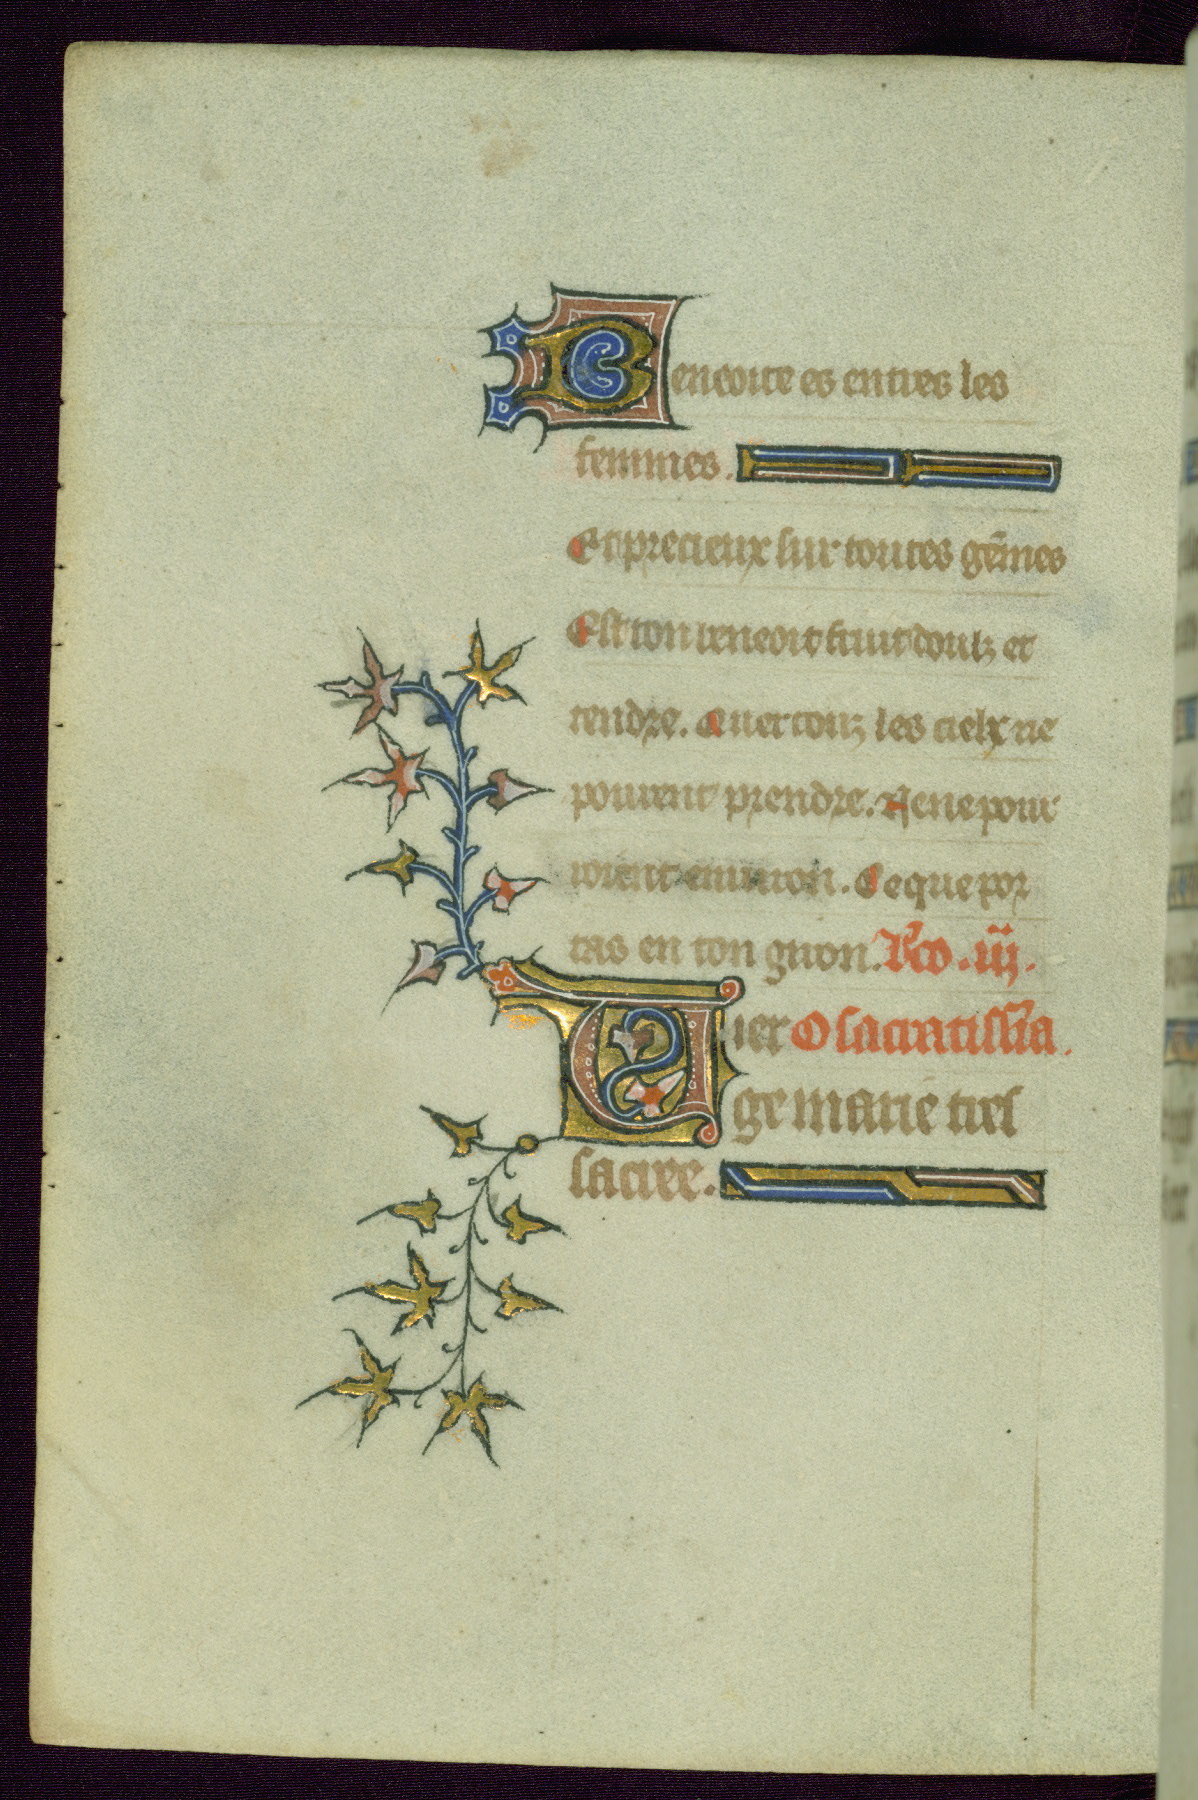 Beneoite es entres les
femmes.
Et precieux sur toutes gēmes
Est ton beneoit fruit doulz et
tendre. Quer touz les cielx ne
peuvent prendre. Ne ne pour
roient environ. Ce que por
tas en ton giron. Lco. iij.
Vier O sacratissīa.
ge marie tres
sacree.